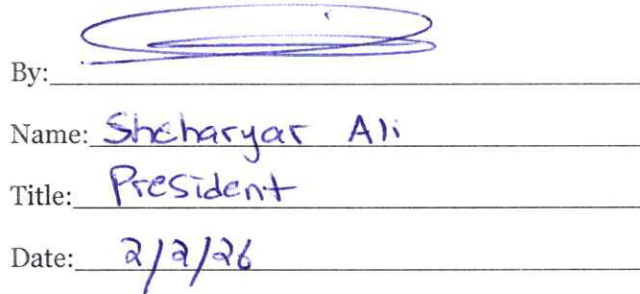 By:
Name: Sheharyar Ali
Title: President
Date: 2/2/26